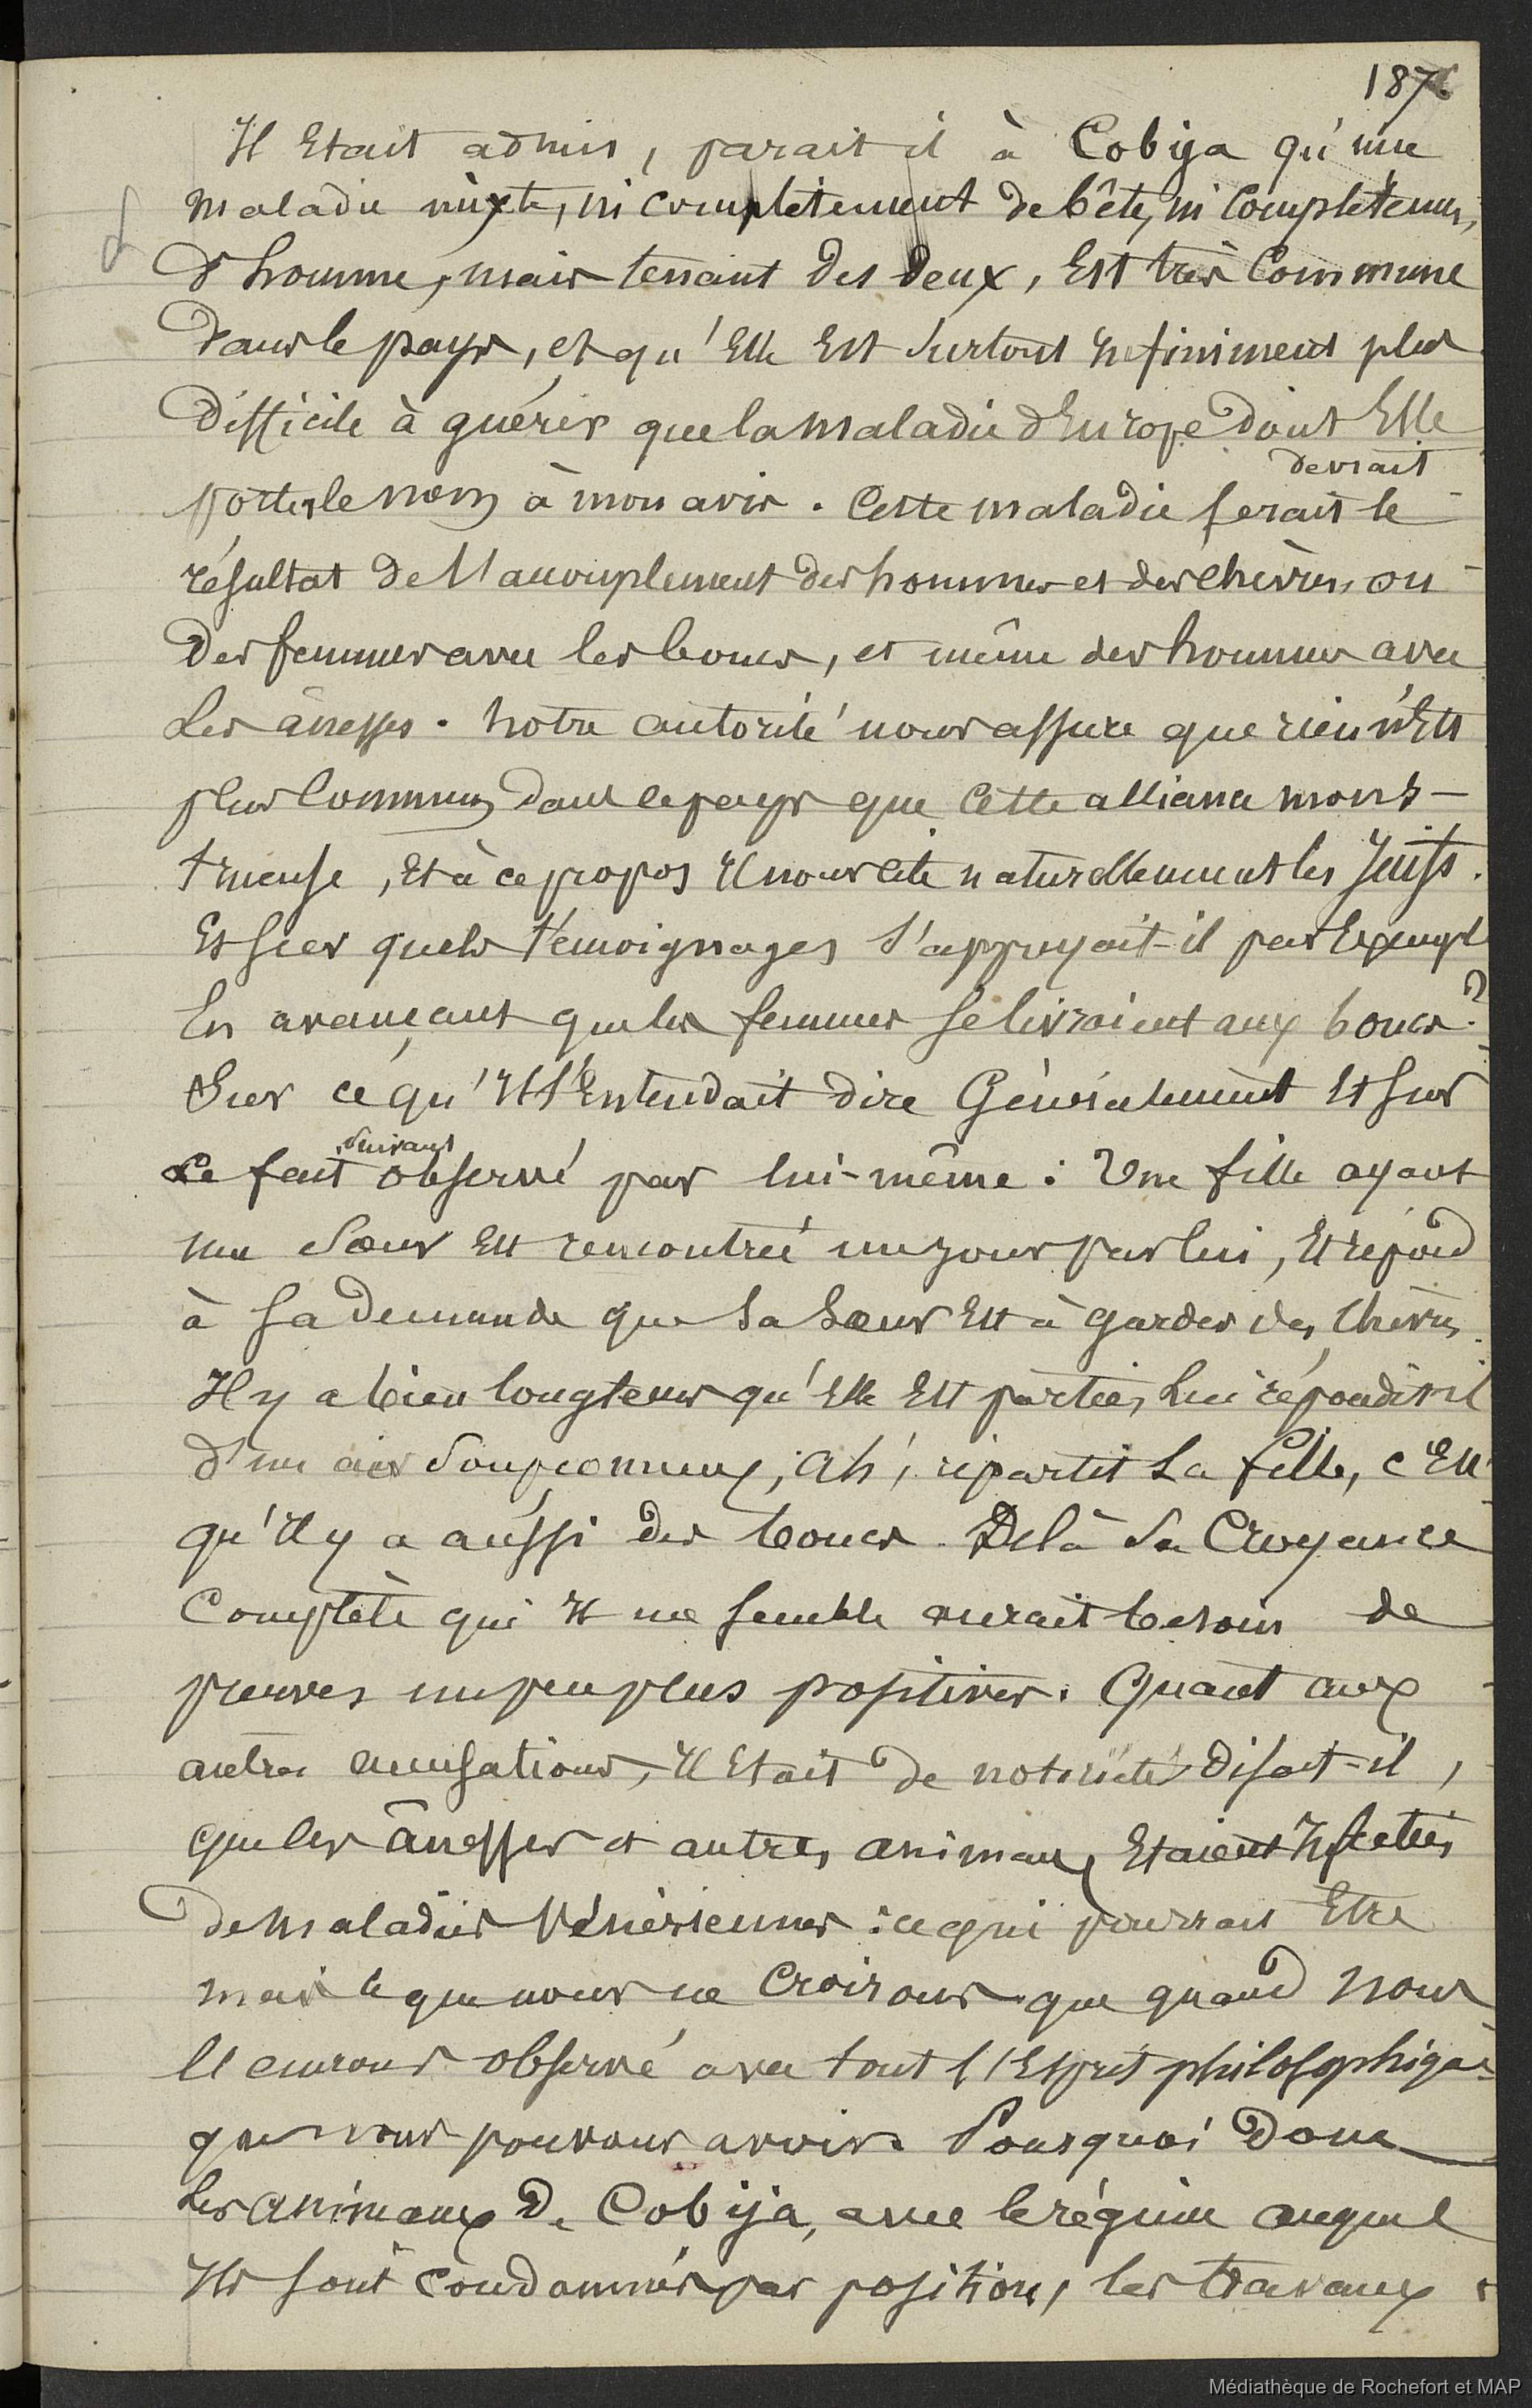 187
Il Etait admis, parait il à Cobija qu'une
maladie mixte, ni complètement de bête, ni complètemen,
d'homme, mais tenant des deux, Est très commune
dans le pays, et qu'Elle Est surtout infiniment plus
difficile à guérir que la maladie d'Europe dont Elle
devrait
porter le nom à mon avis. Cette maladie serait le
résultat de l'accouplement des hommes et des chèvres, ou
des femmes avec les boucs, et même des hommes avec
les ânesses. Notre autorité nous assure que rien n'Est
plus commun dans le pays que cette alliance mons-
trueuse, Et à ce propos Il nous cite naturellement les Juifs.
Et sur quels témoignages s'appuyait-il par Exempl
En avançant que les femmes se livraient aux boucs?
Sur ce qu'Il Entendait dire Généralement Et sur
suivant
Le fait observé par lui-même : Une fille ayant
une sœur Est rencontrée un jour par lui, Et répond
à sa demande que sa sœur Est à garder des chèvres.
Il y a bien longtems qu'Elle Est partie, lui répondit il
d'un air soupçonneux, Ah, répartit la fille, c'Est
qu'Il y a aussi des boucs. De là sa Croyance
Complète qui Il me semble aurait besoin de
preuves un peu plus positives. Quant aux
autres accusations, Il Etait de notoriété disait-il,
que les ânesses et autres animaux Etaient Infectés
de maladies Vénériennes : ce qui pourrait Etre
mais ce que nous ne Croirons que quand nous
l'aurons observé avec tout l'Esprit philosophique
que nous pouvons avoir. Pourquoi donc
les animaux de Cobija, avec le régime auquel
Ils sont condamnés par position, les travaux
Médiathèque de Rochefort et MAP